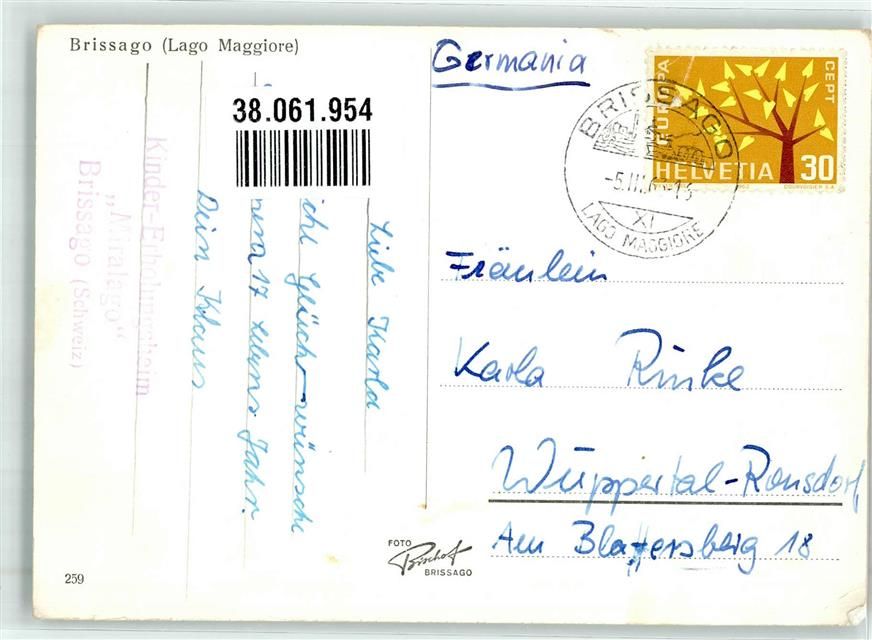 Brissago (Lago Maggiore)
38.061.954
Liebe Karla
Glückwünsche
17 Lebens Jahr.
Dein Klaus
Kinder-Erholungsheim
„Miralago“
Brissago (Schweiz)
259
FOTO
Bischof
BRISSAGO
Germania
EUROPA
CEPT
HELVETIA 30
COURVOISIER S.A.
BRISSAGO
XI
LAGO MAGGIORE
Fräulein
Karla Rinke
Wuppertal-Ronsdorf
Am Blaffersberg 18